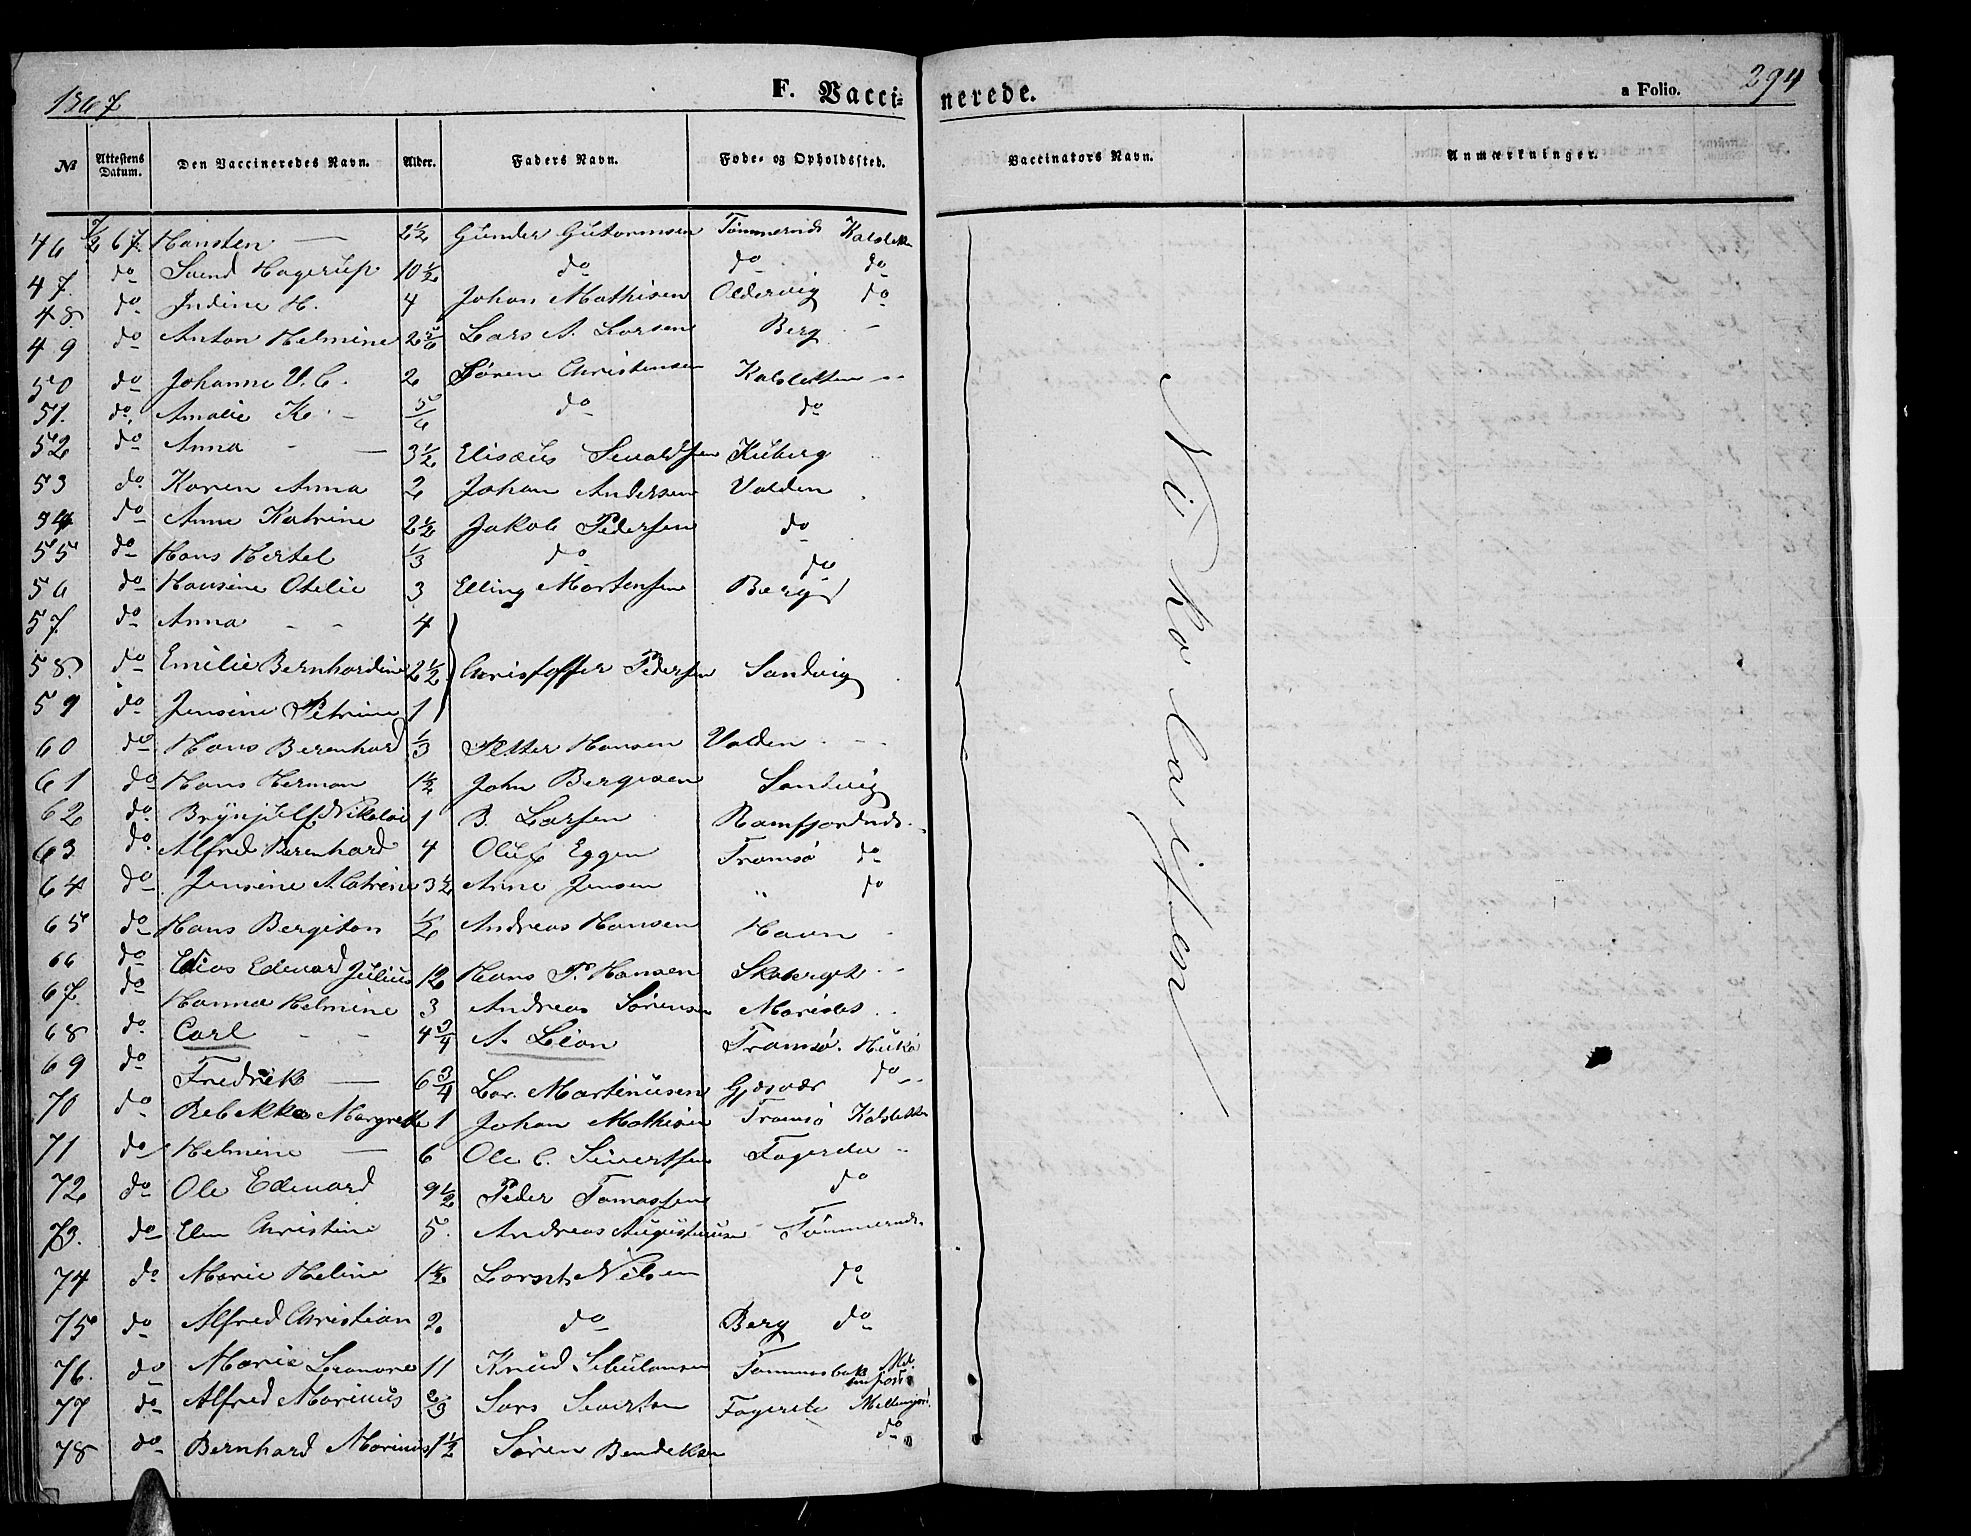 1867 F. Vacci- nerede. a Folio. 294
№ Attestens Datum. Den Vaccineredes Navn. Alder. Faders Navn. Føde- og Opholdssted. Vaccinators Navn. Anmærkninger.
46 7/2 67. Hansten — 2 1/2 Gunder Gutormsen Tømmernds
47 do Svend Hagerup 10 1/2 do do do
48. do Indine H. 4 Johan Mathisen Oldervig do
49 do Anton Helmine 2 5/6 Lars A. Larsen Berg
50 do Johanne V. C. 2 Søren Christensen Kalsletten
51. do. Amalie K. 5/6 do do
52 do Anna — 3 1/2 Elisæus Sivaldsen Kuberg
53 do Karen Anna 2 Johan Andersen Valden
54 do Anne Katrine 2 1/2 Jakob Pedersen do
55 do Hans Hertel 1/3 do do
56 do Hansine Otelie 3 Elling Mortensen Berg
57. do Anna 4
58. do Emilie Bernhardine 2 1/2 Christoffer Pedersen Sandvig
59 do Jensine Petrine 1
60 do Hans Berenhard 1/3 Petter Hansen Valden
61 do Hans Herman 1 1/2 John Bergesen Sandvig
62 do. Brynjulf Nikolai 1 B. Larsen Ramfjordnds.
63 do. Alfred Berenhard 4 Oluf Eggen Tromsø do
64 do Jensine Katrine 3 1/2 Anne Jensen " do
65 do Hans Bergiton 1/2 Andreas Hansen Havn
66 do Elias Edevard Julius 12 Hans P. Hansen
67. do Hanna Helmine 3 Andreas Sørensen
68 do Carl 4 3/4 A. Leon Tromsø.
69 do Fredrik — 6 3/4 Lar. Martinusen Gjæsvær do
70 do Rebekka Margrethe 1 Johan Mathisen Tromsø Kalsletten
71 do Helmine — 6 Ole C. Sivertsen
72 do Ole Edevard 9 1/2 Peder Tomassen do
73. do Elen Christine 5. Andreas Augustinusen Tømmernds.
74 do Marie Heline 1 1/2 Nilsen do
75 do Alfred Christian 2. do Berg do
76. do Marie Leonore 11 Knud
77 do Alfred Marinus 2/3 Lars Sivertsen
78 do Bernhard Marinus 1 1/2 Søren Bendeksen do
Nikolaisen